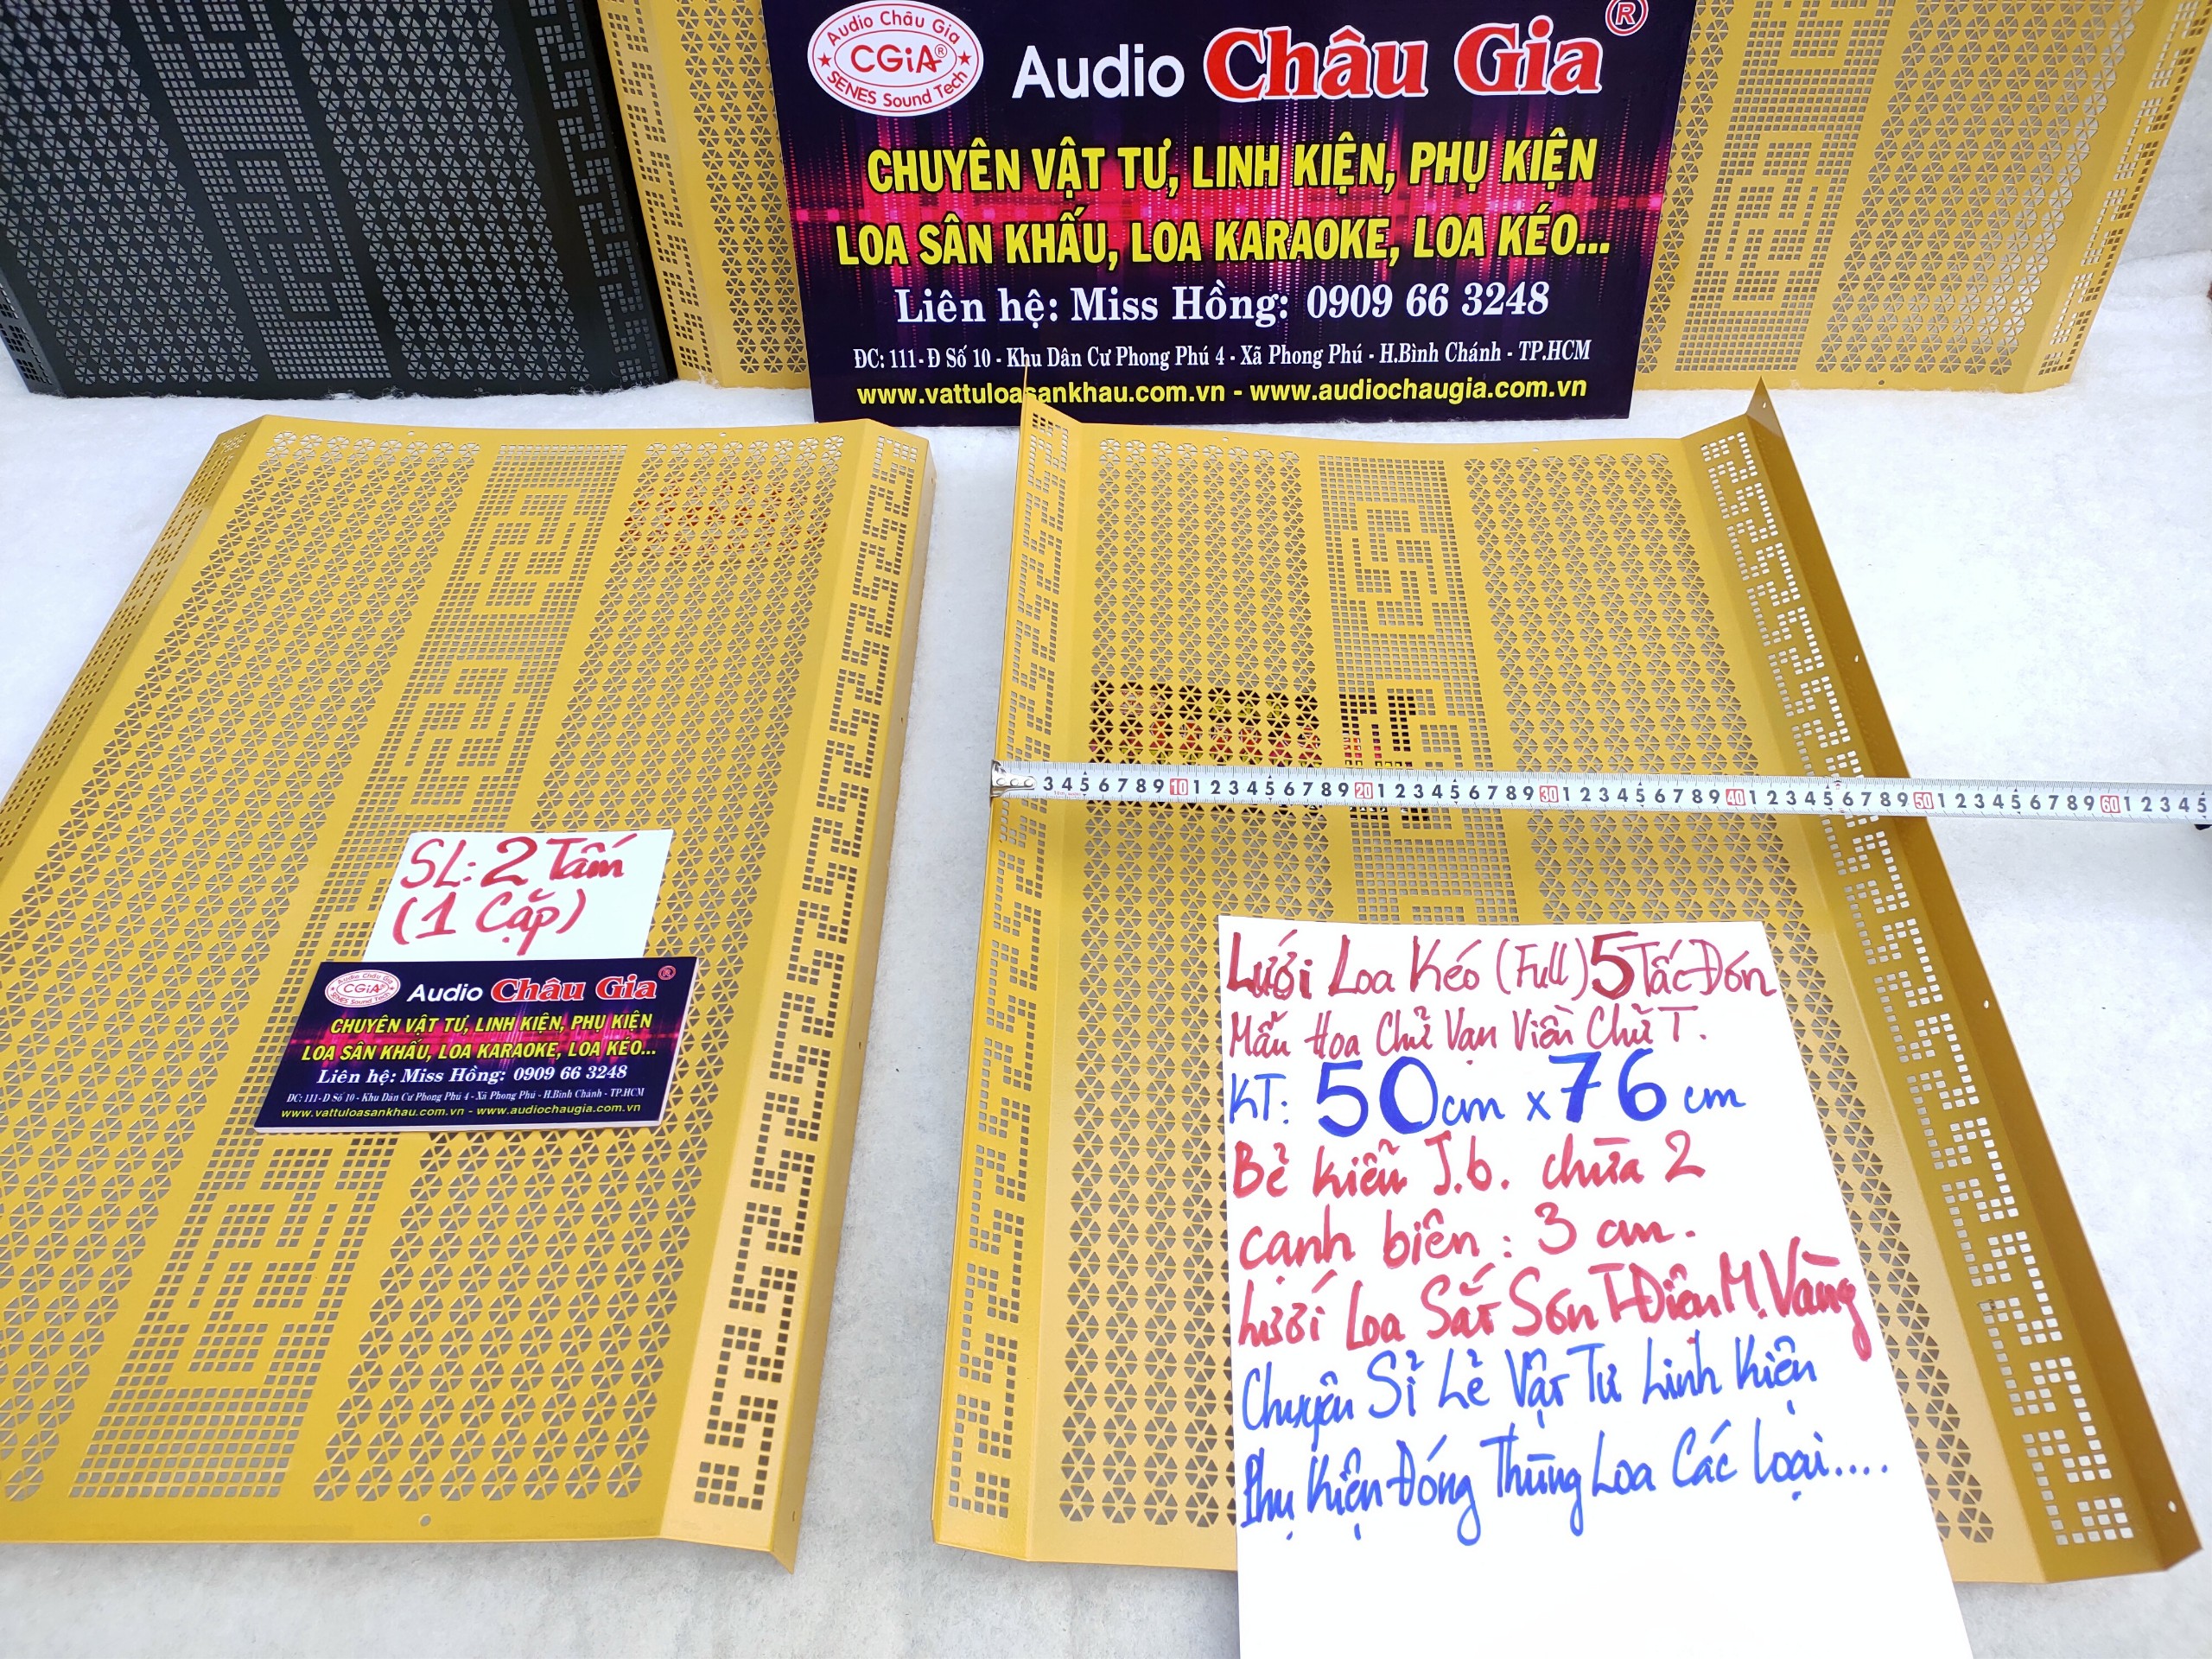 Audio Châu Gia
CGiA®
SENES Sound Tech
Audio Châu Gia ®
CHUYÊN VẬT TƯ, LINH KIỆN, PHỤ KIỆN
LOA SÂN KHẤU, LOA KARAOKE, LOA KÉO...
Liên hệ: Miss Hồng: 0909 66 3248
ĐC: 111- Đ Số 10 - Khu Dân Cư Phong Phú 4 - Xã Phong Phú - H.Bình Chánh - TP.HCM
www.vattuloasankhau.com.vn - www.audiochaugia.com.vn
3 4 5 6 7 8 9 10 1 2 3 4 5 6 7 8 9 20 1 2 3 4 5 6 7 8 9 30 1 2 3 4 5 6 7 8 9 40 1 2 3 4 5 6 7 8 9 50 1 2 3 4 5 6 7 8 9 60 1 2 3 4 5
SL: 2 Tấm
(1 Cặp)
Audio Châu Gia
CGiA®
SENES Sound Tech
Audio Châu Gia ®
CHUYÊN VẬT TƯ, LINH KIỆN, PHỤ KIỆN
LOA SÂN KHẤU, LOA KARAOKE, LOA KÉO...
Liên hệ: Miss Hồng: 0909 66 3248
ĐC: 111- Đ Số 10 - Khu Dân Cư Phong Phú 4 - Xã Phong Phú - H.Bình Chánh - TP.HCM
www.vattuloasankhau.com.vn - www.audiochaugia.com.vn
Lưới Loa Kéo (Full) 5 Tấc Đơn
Mẫu Hoa Chữ Vạn Viền Chữ T.
KT: 50cm x 76 cm
Bẻ kiểu J.b. chừa 2
cạnh biên: 3 cm.
Lưới Loa Sắt Sơn T-Điện M. Vàng
Chuyên Sỉ Lẻ Vật Tư Linh Kiện
Phụ Kiện Đóng Thùng Loa Các Loại....